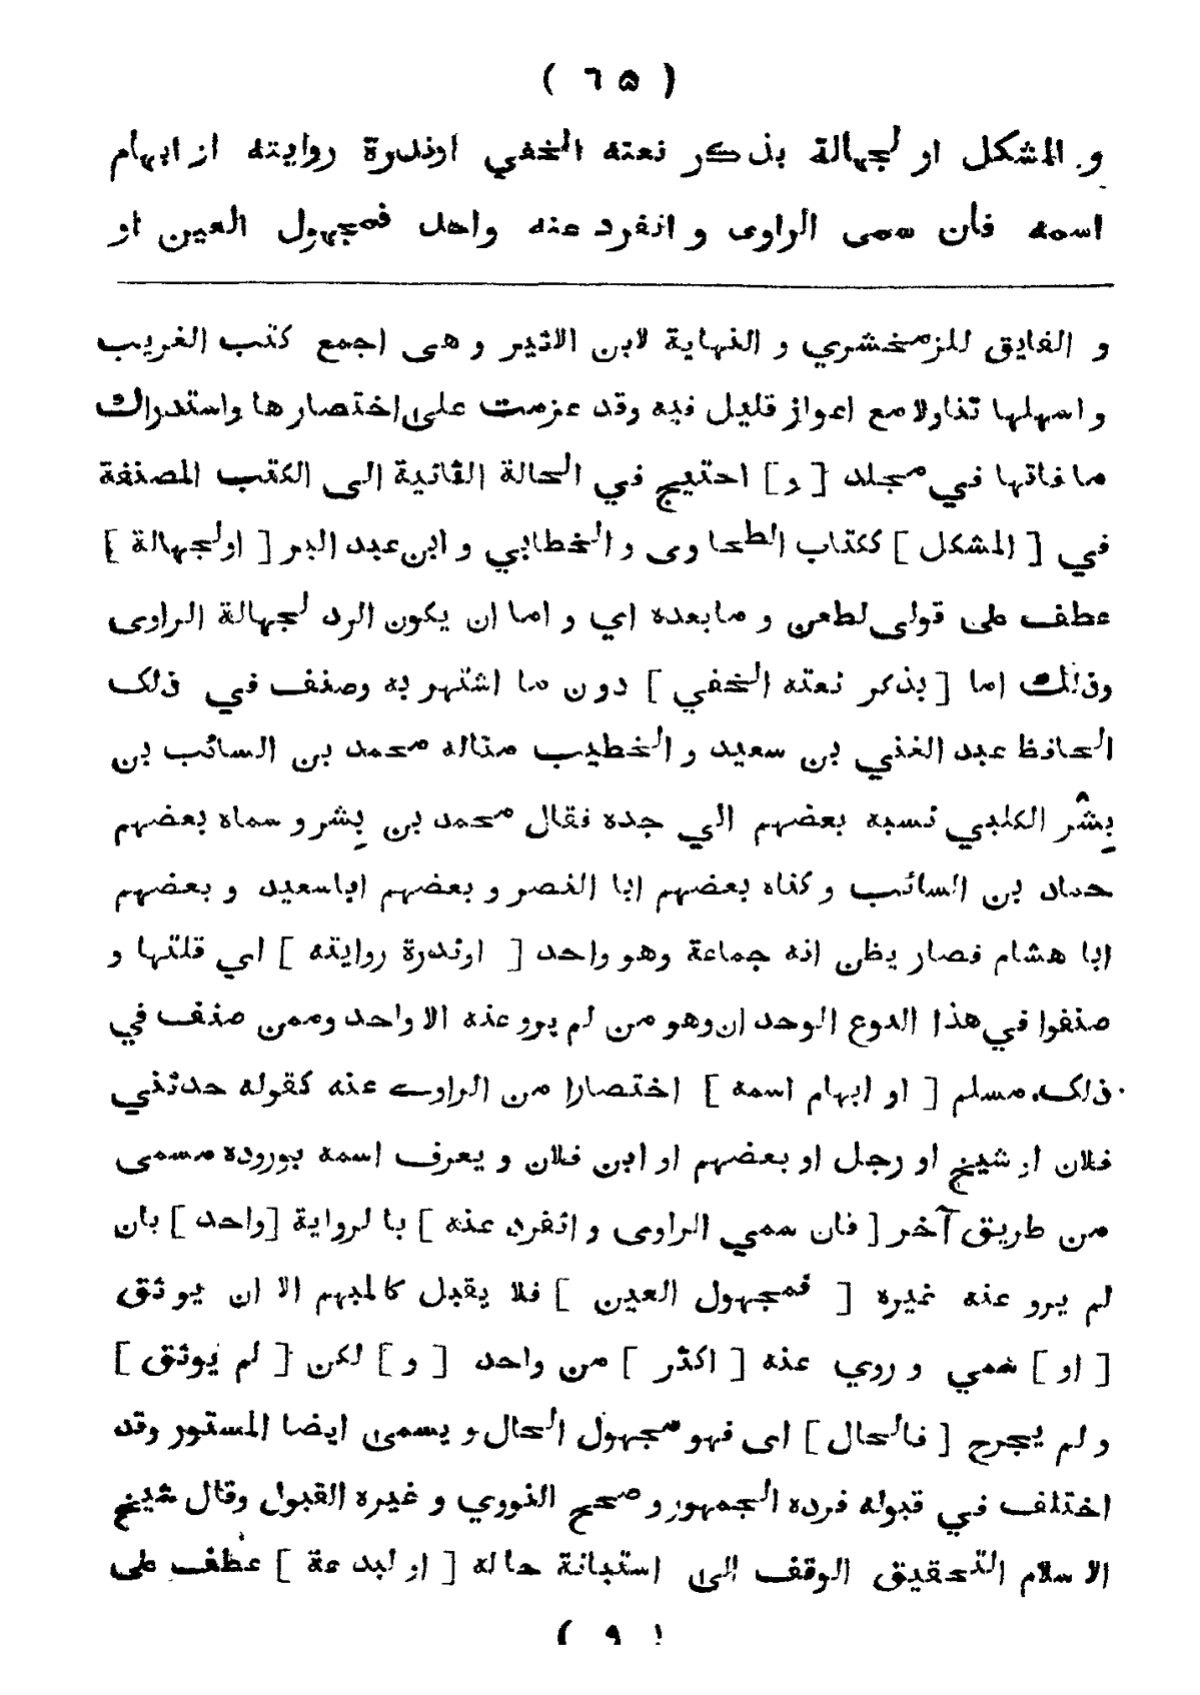 ( ٦٥ )
و المشكل او لجهالة بذكر نعته الخفي اوندرة روايته از ابهام
اسمه فأن سمى الراوى و انفرد عنه واحد فمجهول العين او
و الفايق للزمخشري و النهاية لابن الاثير و هى اجمع كتب الغريب
و اسهلها تناولا مع اعواز قليل فيه وقد عزمت على اختصارها واستدراك
ما فاتها في مجلد [ و ] احتيج في الحالة الثانية الى الكتب المصنفة
في [ المشكل ] ككتاب الطحاوى و الخطابي و ابن عبد البر [ اولجهالة ]
عطف على قولى لطعن و مابعده اي و اما ان يكون الرد لجهالة الراوى
وذلك اما [ بذكر نعته الخفي ] دون ما اشتهر به وصنف في ذلك
الحافظ عبد الغني بن سعيد و الخطيب مثاله محمد بن السائب بن
بِشْر الكلبي نسبه بعضهم الي جده فقال محمد بن بِشر و سماه بعضهم
حماد بن السائب و كناه بعضهم ابا النصر و بعضهم اباسعيد و بعضهم
ابا هشام فصار يظن انه جماعة وهو واحد [ اوندرة روايته ] اي قلتها و
صنفوا في هذا النوع الوحدان وهو من لم يرو عنه الا واحد وممن صنف في
ذلك مسلم [ او ابهام اسمه ] اختصارا من الراوے عنه كقوله حدثني
فلان او شيخ او رجل او بعضهم او ابن فلان و يعرف اسمه بوروده مسمى
من طريق آخر [ فان سمي الراوى و انفرد عنه ] با لرواية [واحد ] بان
لم يرو عنه غيره [ فمجهول العين ] فلا يقبل كالمبهم الا ان يوثق
[ او ] سمي و روي عنه [ اكثر ] من واحد [ و ] لكن [ لم يوثق ]
و لم يجرح [ فالحال ] اى فهو مجهول الحال و يسمى ايضا المستور وقد
اختلف في قبوله فرده الجمهور و صحح النووي و غيره القبول وقال شيخ
الاسلام التحقيق الوقف الى استبانة حاله [ او لبدعة ] عطف على
( ٩ )